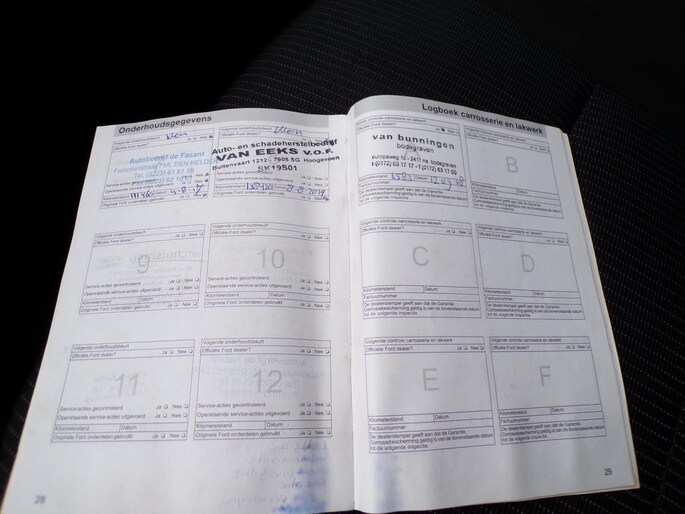 Onderhoudsgegevens
Klein
Klein
Autobedrijf de Fazant
DEN HELDER
Tel. (0223) 61 61 16
Auto- en schadeherstelbedrijf
VAN EEKS V.O.F.
Buitenvaart 1212 - 7905 SG Hoogeveen
SK19501
Volgende onderhoudsbeurt
Officiële Ford dealer? Ja Nee
9
Service-acties gecontroleerd Ja Nee
Openstaande service-acties uitgevoerd Ja Nee
Kilometerstand Datum
Originele Ford onderdelen gebruikt Ja Nee
Volgende onderhoudsbeurt
Officiële Ford dealer? Ja Nee
10
Service-acties gecontroleerd Ja Nee
Openstaande service-acties uitgevoerd Ja Nee
Kilometerstand Datum
Originele Ford onderdelen gebruikt Ja Nee
Volgende onderhoudsbeurt
Officiële Ford dealer? Ja Nee
11
Service-acties gecontroleerd Ja Nee
Openstaande service-acties uitgevoerd Ja Nee
Kilometerstand Datum
Originele Ford onderdelen gebruikt Ja Nee
Volgende onderhoudsbeurt
Officiële Ford dealer? Ja Nee
12
Service-acties gecontroleerd Ja Nee
Openstaande service-acties uitgevoerd Ja Nee
Kilometerstand Datum
Originele Ford onderdelen gebruikt Ja Nee
28
Logboek carrosserie en lakwerk
van bunningen
bodegraven
europaweg 10 - 2411 ne bodegraven
(0172) 63 17 17 - f (0172) 63 17 00
Kilometerstand Datum
Factuurnummer
De dealerstempel geeft aan dat de Garantie
Carrosseriebescherming geldig is van de bovenstaande datum
tot de volgende inspectie.
B
Kilometerstand Datum
Factuurnummer
Volgende controles carrosserie en lakwerk
Officiële Ford dealer? Ja Nee
C
Kilometerstand Datum
Factuurnummer
De dealerstempel geeft aan dat de Garantie
Carrosseriebescherming geldig is van de bovenstaande datum
tot de volgende inspectie.
Volgende controles carrosserie en lakwerk
Officiële Ford dealer? Ja Nee
D
Kilometerstand Datum
Factuurnummer
De dealerstempel geeft aan dat de Garantie
Carrosseriebescherming geldig is van de bovenstaande datum
tot de volgende inspectie.
Volgende controles carrosserie en lakwerk
Officiële Ford dealer? Ja Nee
E
Kilometerstand Datum
Factuurnummer
De dealerstempel geeft aan dat de Garantie
Carrosseriebescherming geldig is van de bovenstaande datum
tot de volgende inspectie.
Volgende controles carrosserie en lakwerk
Officiële Ford dealer? Ja Nee
F
Kilometerstand Datum
Factuurnummer
De dealerstempel geeft aan dat de Garantie
Carrosseriebescherming geldig is van de bovenstaande datum
tot de volgende inspectie.
29